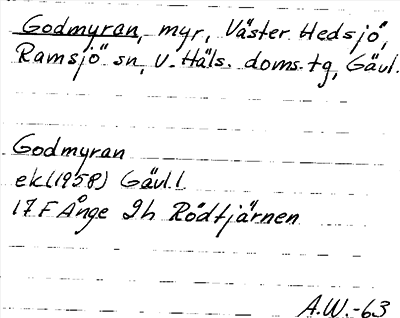 Godmyran, myr, Väster Hedsjö,
Ramsjö sn, V. Häls. doms.tg, Gävl.
Godmyran
ek(1958) Gävl.l
17F Ånge 2h Rödtjärnen
A.W.-63